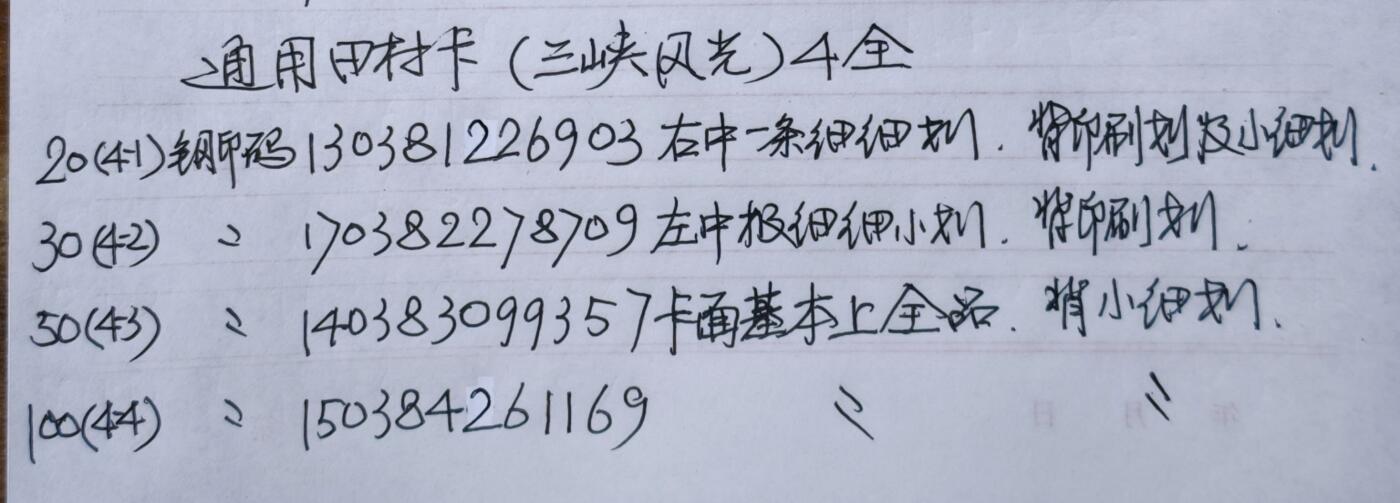 通用田村卡（三峡风光）4全
20(4-1)钢印码130381226903右中一条细细划．背印刷划及小细划．
30(4-2) 〃 170382278709左中极细细小划．背印刷划．
50(4-3) 〃 140383099357卡面基本上全品．背小细划．
100(4-4) 〃 150384261169 〃 〃
年 月 日